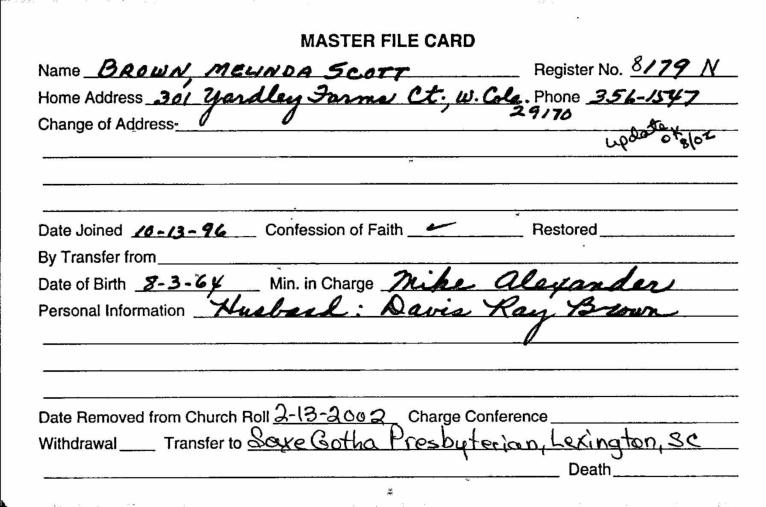 MASTER FILE CARD
Name BROWN, MELINDA SCOTT Register No. 8179 N
Home Address 301 Yardley Farms Ct., W. Cola. Phone 356-1547
29170
Change of Address-
update OK 8/02
Date Joined 10-13-96 Confession of Faith ✓ Restored
By Transfer from
Date of Birth 8-3-64 Min. in Charge Mike Alexander
Personal Information Husband: Davis Ray Brown
Date Removed from Church Roll 2-13-2002 Charge Conference
Withdrawal Transfer to Saxe Gotha Presbyterian, Lexington, SC
Death